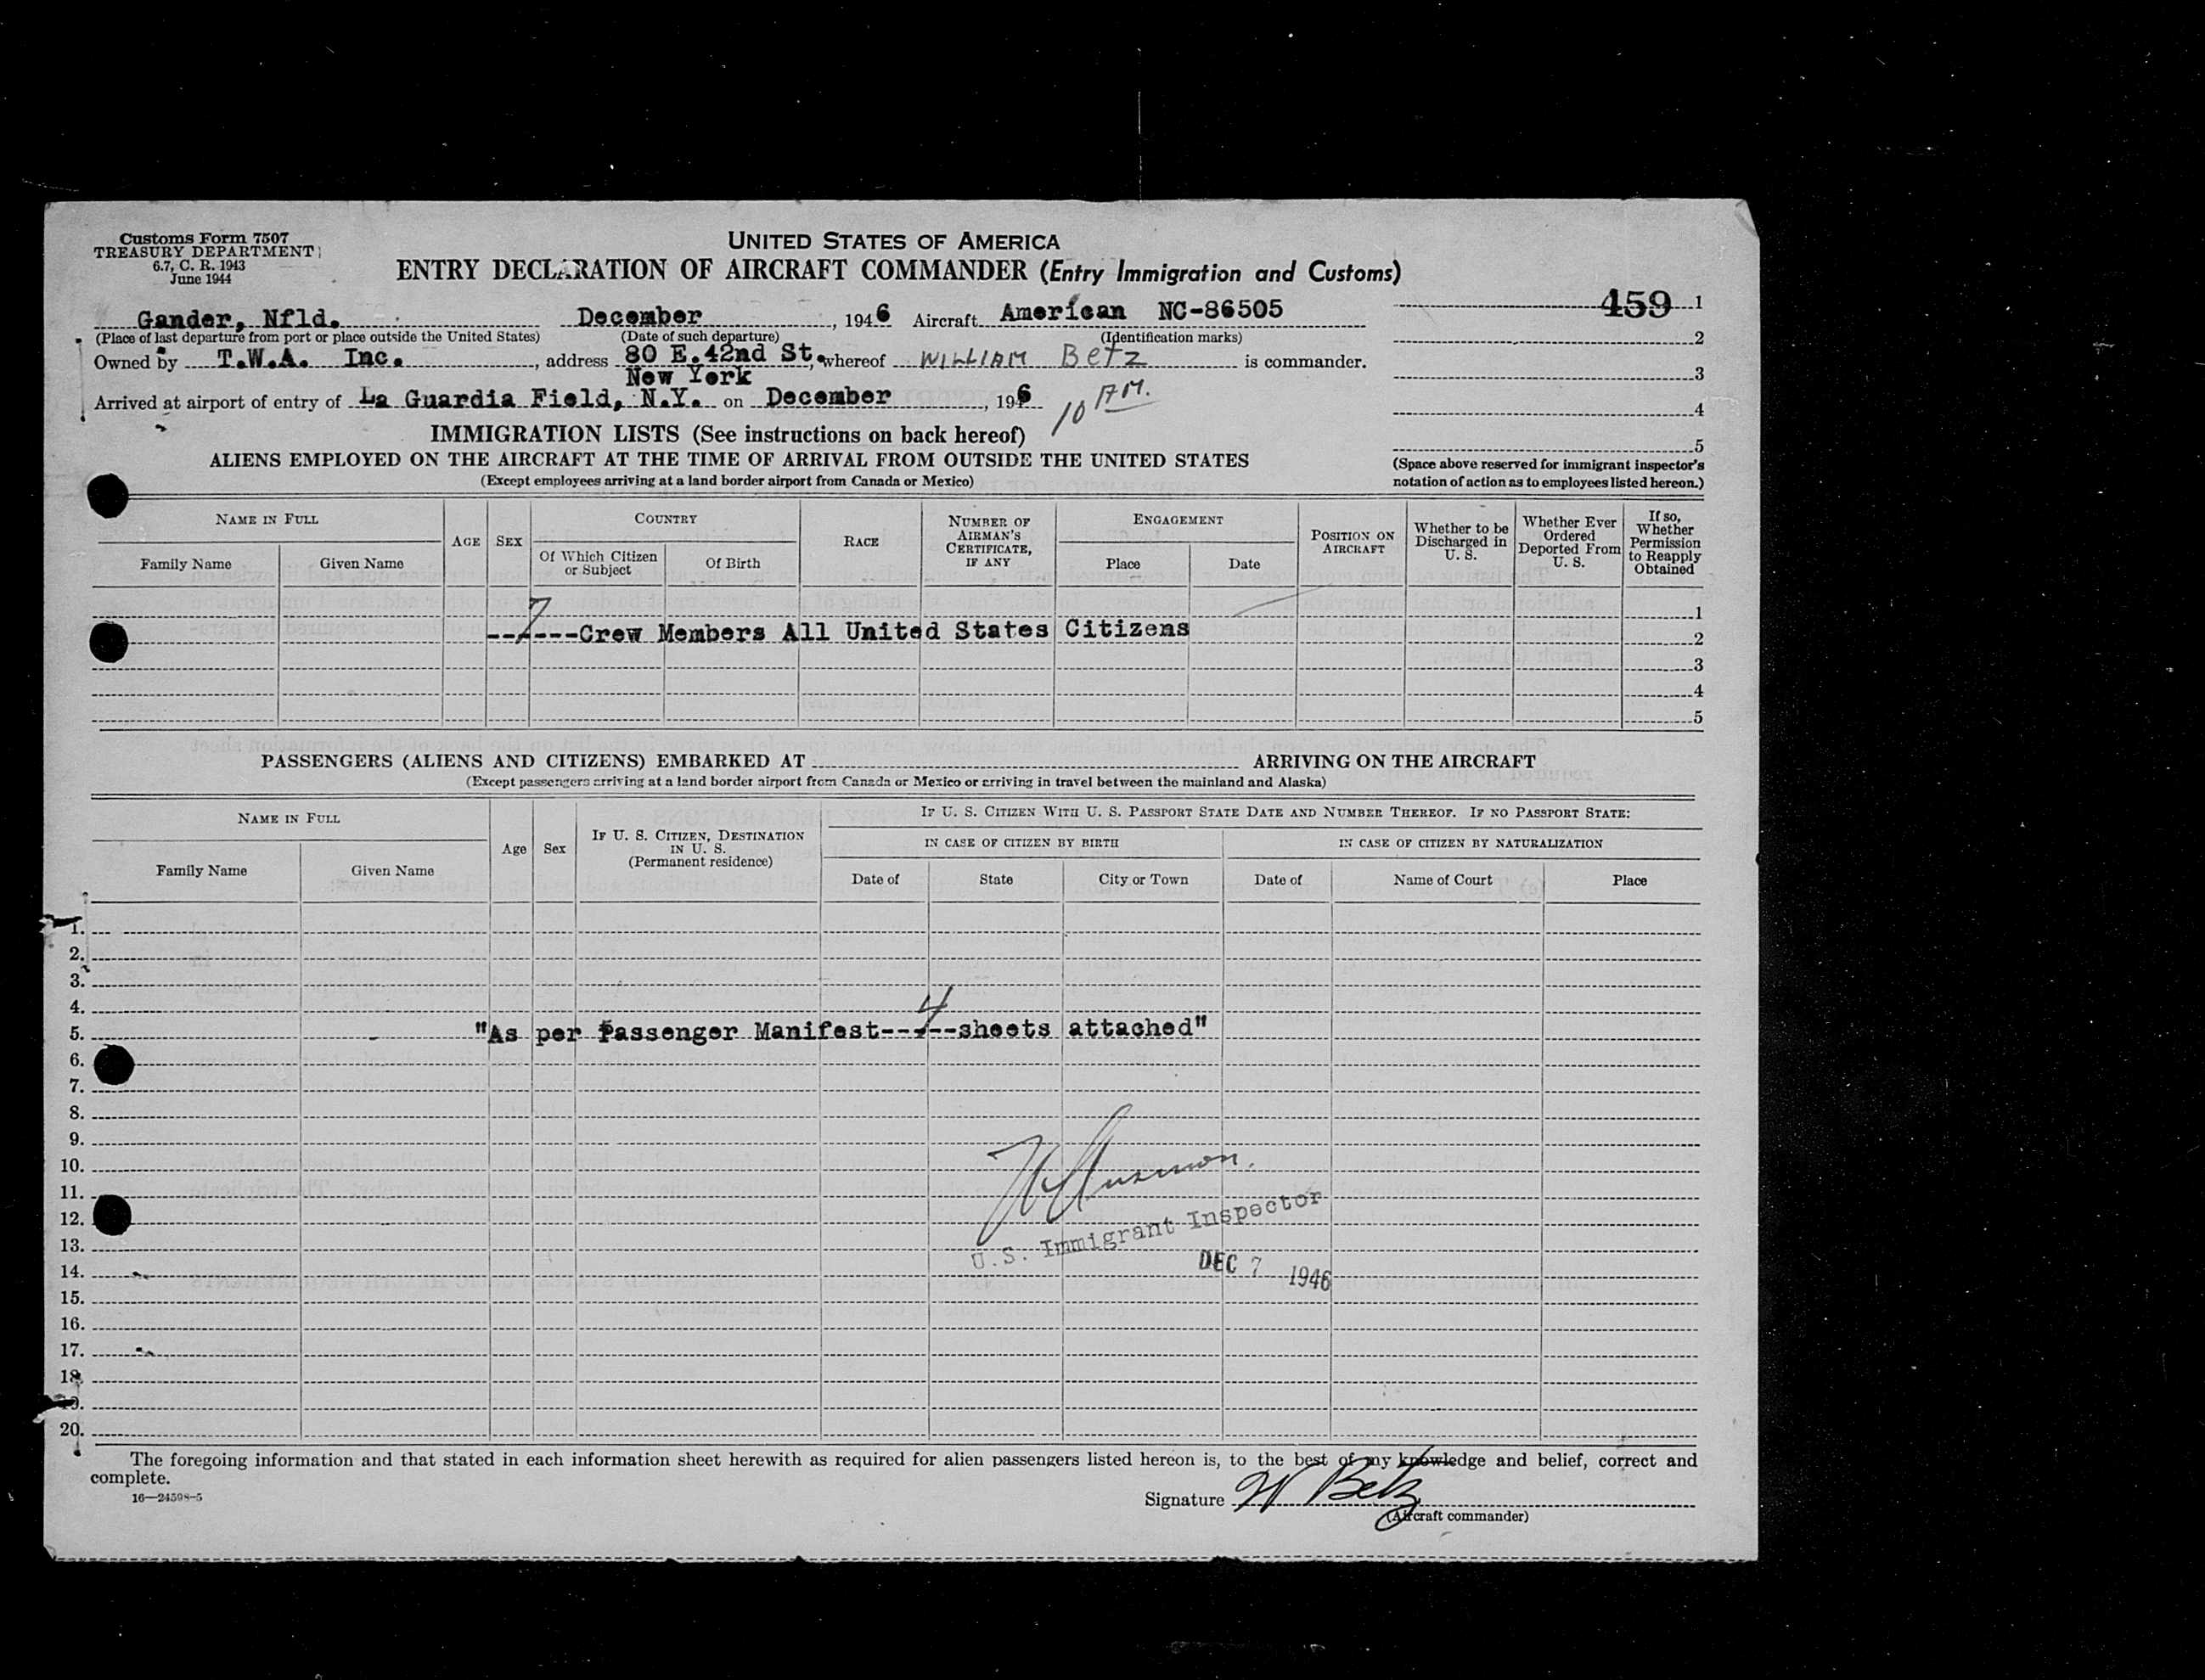 Customs Form 7507
TREASURY DEPARTMENT
6.7, C. R. 1943
June 1944
UNITED STATES OF AMERICA
ENTRY DECLARATION OF AIRCRAFT COMMANDER (Entry Immigration and Customs)
459 1
Gander, Nfld. December, 1946 Aircraft American NC-86505
(Place of last departure from port or place outside the United States) (Date of such departure) (Identification marks)
2
Owned by T.W.A. Inc., address 80 E.42nd St. whereof WILLIAM Betz is commander.
New York
3
Arrived at airport of entry of La Guardia Field, N.Y. on December, 1946 10 AM.
4
IMMIGRATION LISTS (See instructions on back hereof)
5
ALIENS EMPLOYED ON THE AIRCRAFT AT THE TIME OF ARRIVAL FROM OUTSIDE THE UNITED STATES
(Except employees arriving at a land border airport from Canada or Mexico)
(Space above reserved for immigrant inspector's
notation of action as to employees listed hereon.)
NAME IN FULL
Family Name
Given Name
AGE
SEX
COUNTRY
Of Which Citizen
or Subject
Of Birth
RACE
NUMBER OF
AIRMAN'S
CERTIFICATE,
IF ANY
ENGAGEMENT
Place
Date
POSITION ON
AIRCRAFT
Whether to be
Discharged in
U. S.
Whether Ever
Ordered
Deported From
U. S.
If so,
Whether
Permission
to Reapply
Obtained
1
--7---Crew Members All United States Citizens
2
3
4
5
PASSENGERS (ALIENS AND CITIZENS) EMBARKED AT ARRIVING ON THE AIRCRAFT
(Except passengers arriving at a land border airport from Canada or Mexico or arriving in travel between the mainland and Alaska)
NAME IN FULL
Family Name
Given Name
Age
Sex
IF U. S. CITIZEN, DESTINATION
IN U. S.
(Permanent residence)
IF U. S. CITIZEN WITH U. S. PASSPORT STATE DATE AND NUMBER THEREOF. IF NO PASSPORT STATE:
IN CASE OF CITIZEN BY BIRTH
IN CASE OF CITIZEN BY NATURALIZATION
Date of
State
City or Town
Date of
Name of Court
Place
1.
2.
3.
4.
5. "As per Passenger Manifest---4--sheets attached"
6.
7.
8.
9.
10.
11.
12.
U.S. Immigrant Inspector
13.
DEC 7 1946
14.
15.
16.
17.
18.
19.
20.
The foregoing information and that stated in each information sheet herewith as required for alien passengers listed hereon is, to the best of my knowledge and belief, correct and
complete.
16—24598-5
Signature W Betz
(Aircraft commander)